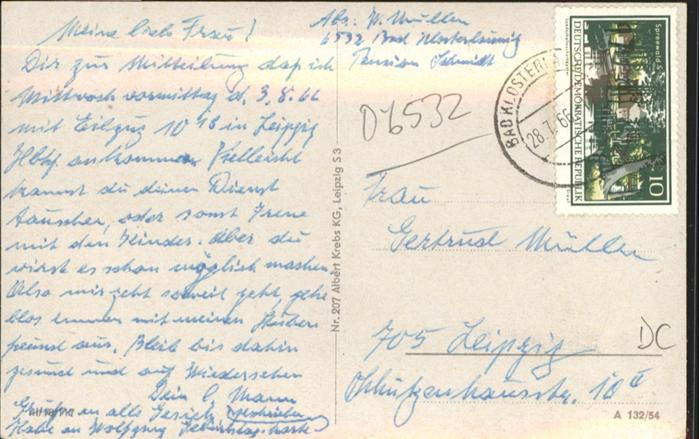 Meine liebe Frau!
Dir zur Mitteilung daß ich
Mittwoch vormittag d. 3.8.66
mit Eilzug 10 18 in Leipzig
Hbhf. ankomme. Vielleicht
kannst du deinen Dienst
tauschen, oder sonst Irene
mit den Kinder. Aber du
wirst es schon möglich machen
Also mir geht soweit geht, gehe
blos immer mit meinen
freund aus. Bleib bis dahin
gesund und auf Wiedersehen
Dein l. Mann
Grüße an alle
Habe an Wolfgang Geburtstagskarte
geschrieben
Abs: W. Müller
6532 Bad Klosterlausnitz
Pension Schmidt
D6532
BAD KLOSTERLA
28.7.66
Spreewald
DEUTSCHE DEMOKRATISCHE REPUBLIK
10
Frau
Gertrud Müller
705 Leipzig
Schützenhausstr. 10 II
DC
Nr. 207 Albert Krebs KG, Leipzig S 3
A 132/54